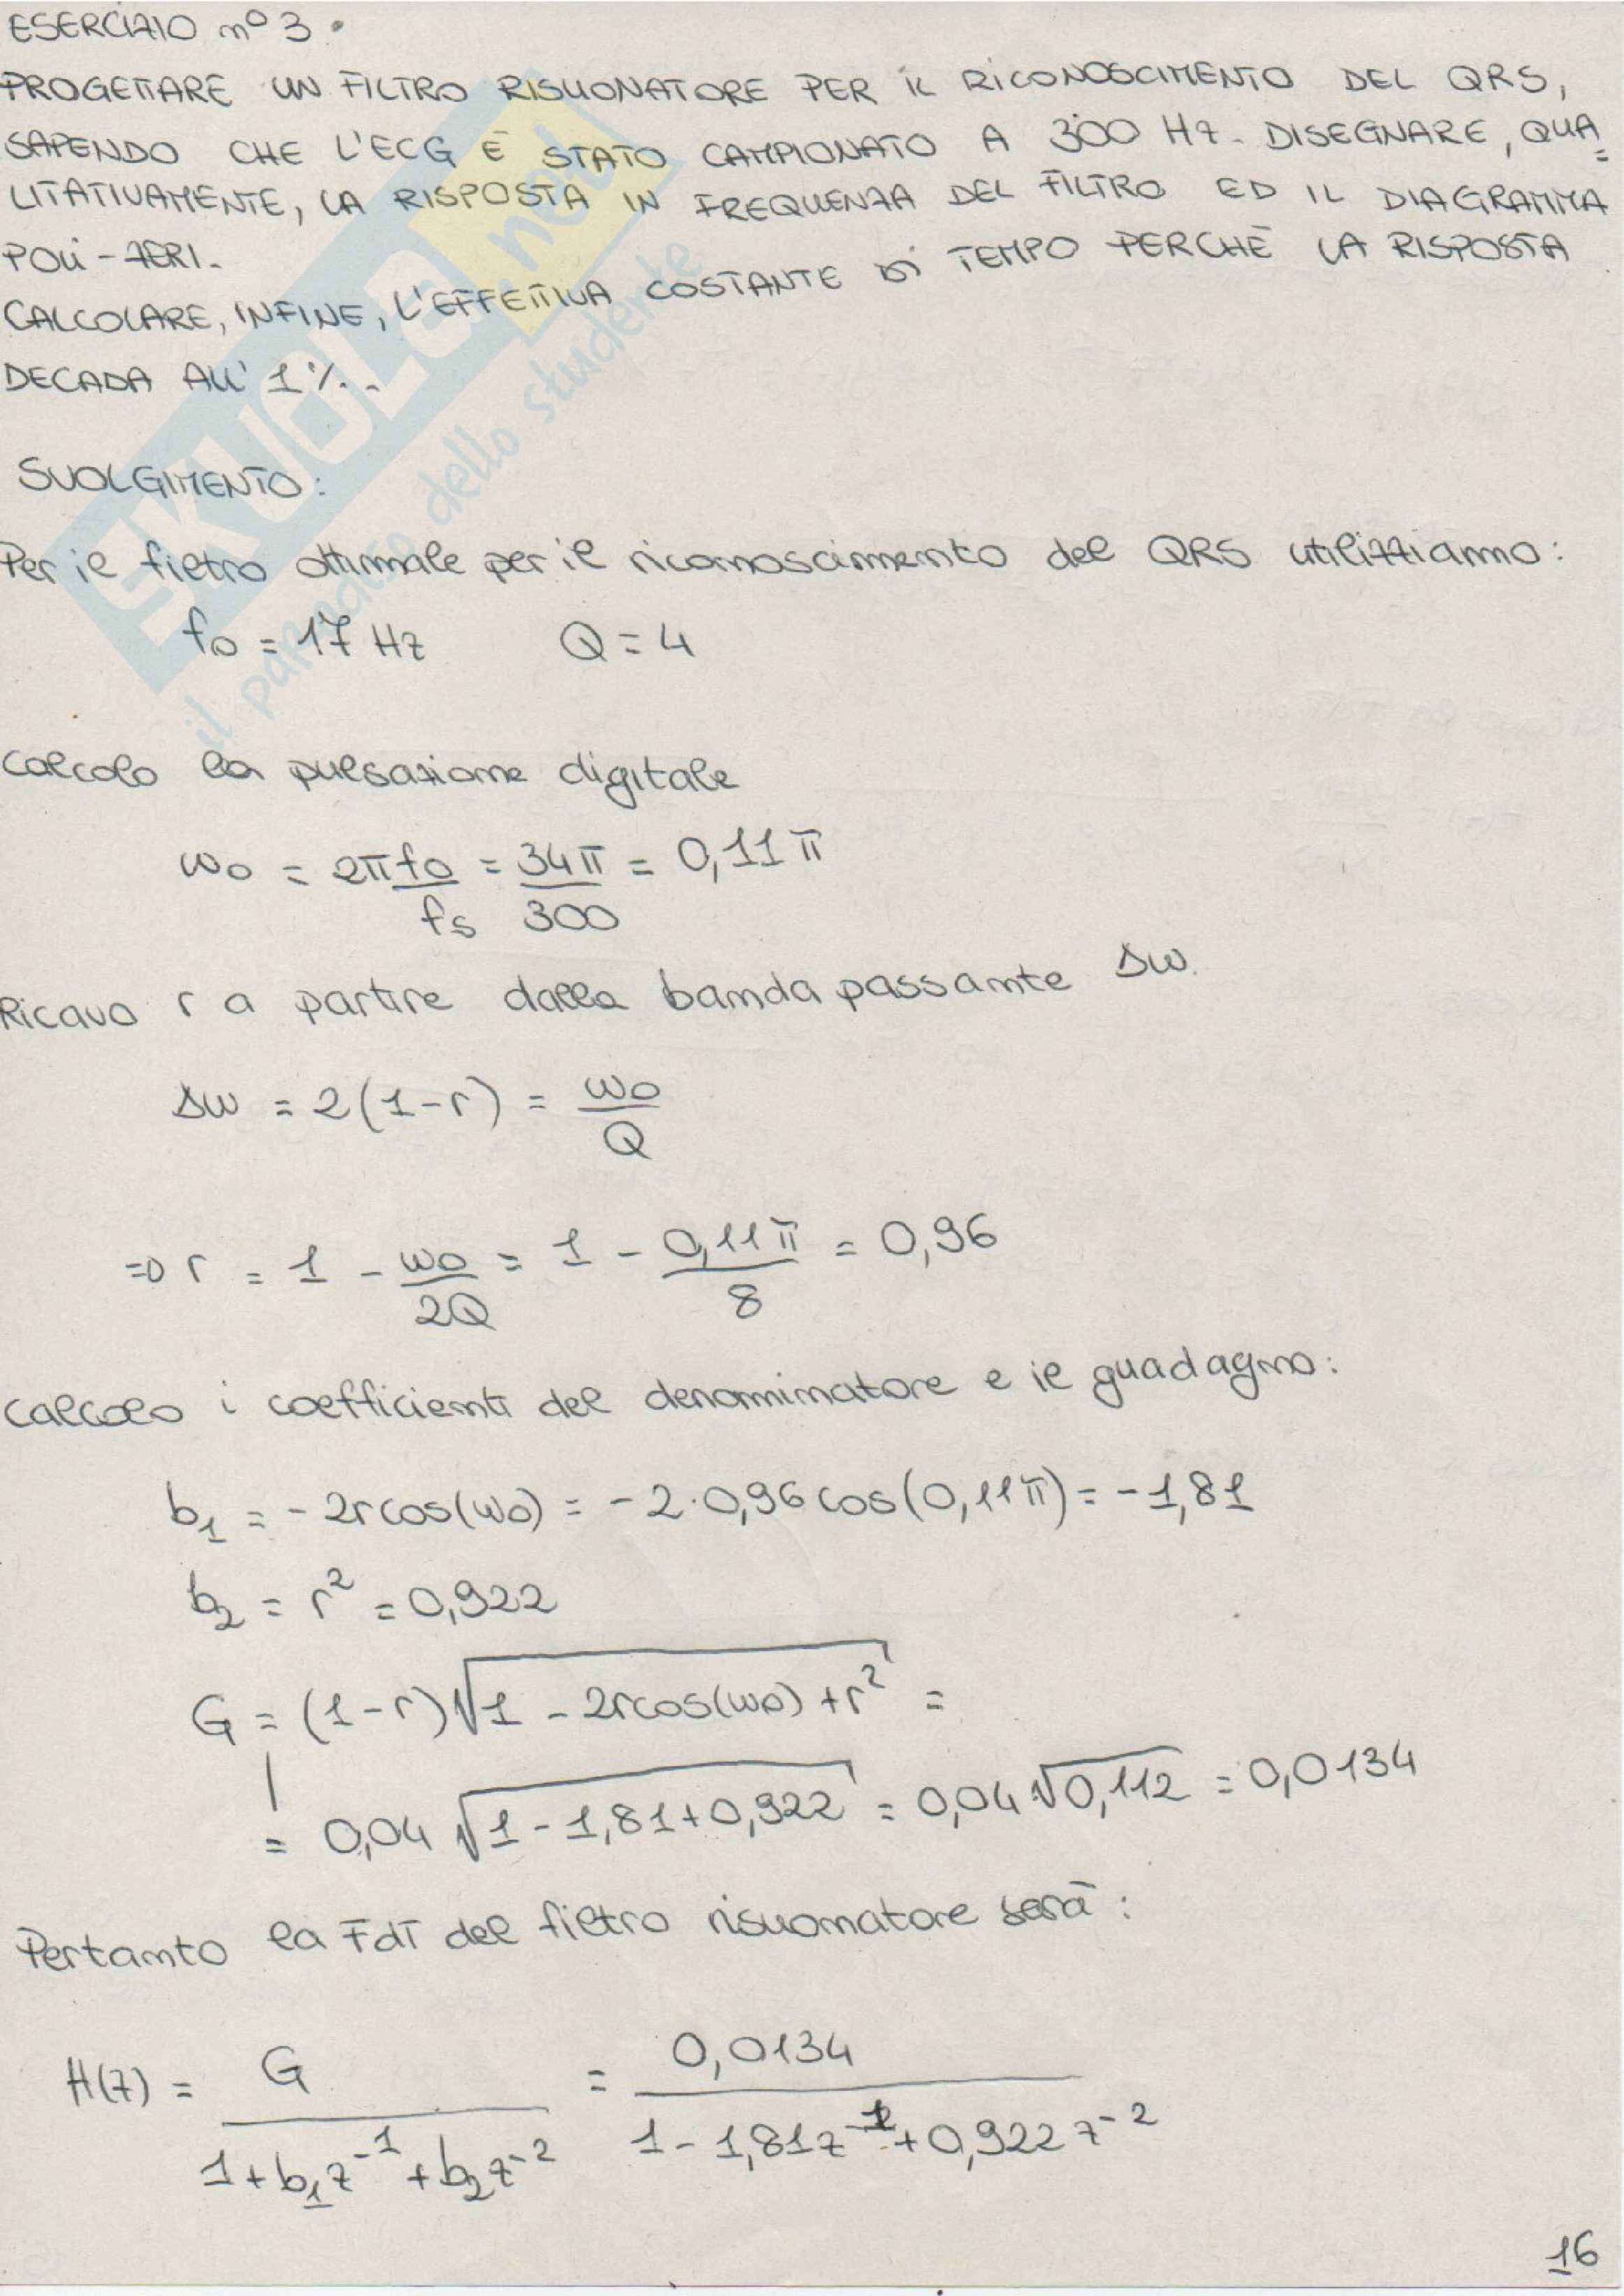 ESERCIZIO n° 3.
PROGETTARE UN FILTRO RISUONATORE PER IL RICONOSCIMENTO DEL QRS,
SAPENDO CHE L'ECG È STATO CAMPIONATO A 300 Hz. DISEGNARE, QUA=
LITATIVAMENTE, LA RISPOSTA IN FREQUENZA DEL FILTRO ED IL DIAGRAMMA
POLI-ZERI.
CALCOLARE, INFINE, L'EFFETTIVA COSTANTE DI TEMPO PERCHÈ LA RISPOSTA
DECADA ALL'1%.
SVOLGIMENTO:
Per il filtro ottimale per il riconoscimento del QRS utilizziamo:
f0 = 17 Hz Q = 4
Calcolo la pulsazione digitale
ω0 = 2π f0/fs = 34π/300 = 0,11π
Ricavo r a partire dalla banda passante Δω.
Δω = 2(1-r) = ω0/Q
=> r = 1 - ω0/2Q = 1 - 0,11π/8 = 0,96
Calcolo i coefficienti del denominatore e il guadagno:
b1 = -2rcos(ω0) = -2·0,96cos(0,11π) = -1,81
b2 = r² = 0,922
G = (1-r)√(1 - 2rcos(ω0) + r²) =
= 0,04 √(1 - 1,81 + 0,922) = 0,04·√0,112 = 0,0134
Pertanto la FdT del filtro risuonatore sarà:
H(z) = G/(1 + b1z⁻¹ + b2z⁻²) = 0,0134/(1 - 1,81z⁻¹ + 0,922z⁻²)
16
SKUOLA.net
il paradiso dello studente